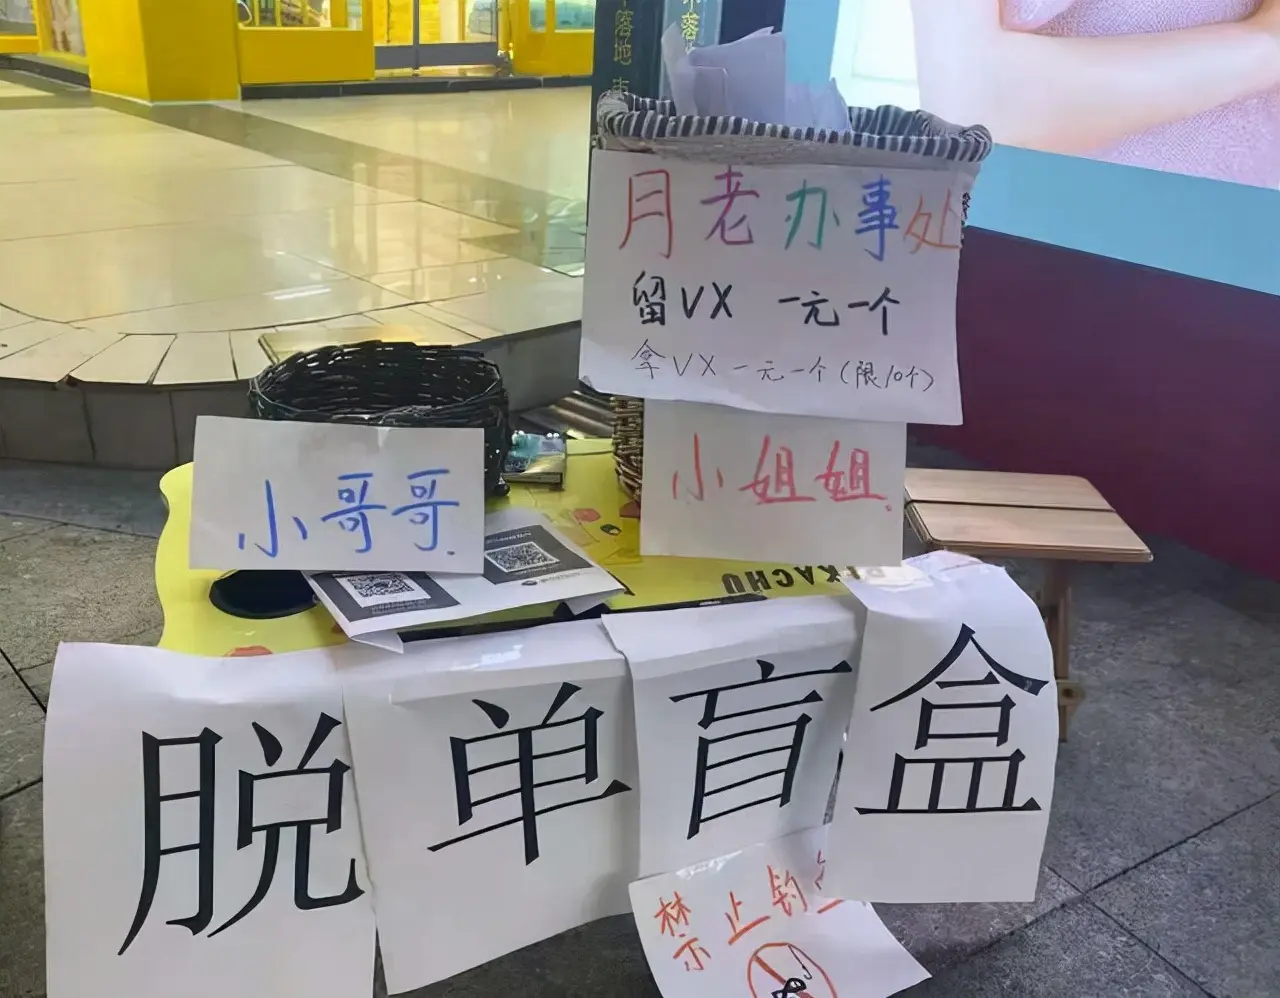 月老办事处
留VX 一元一个
拿VX一元一个(限10个)
小哥哥.
小姐姐.
PIKACHU
脱单盲盒
禁止钓